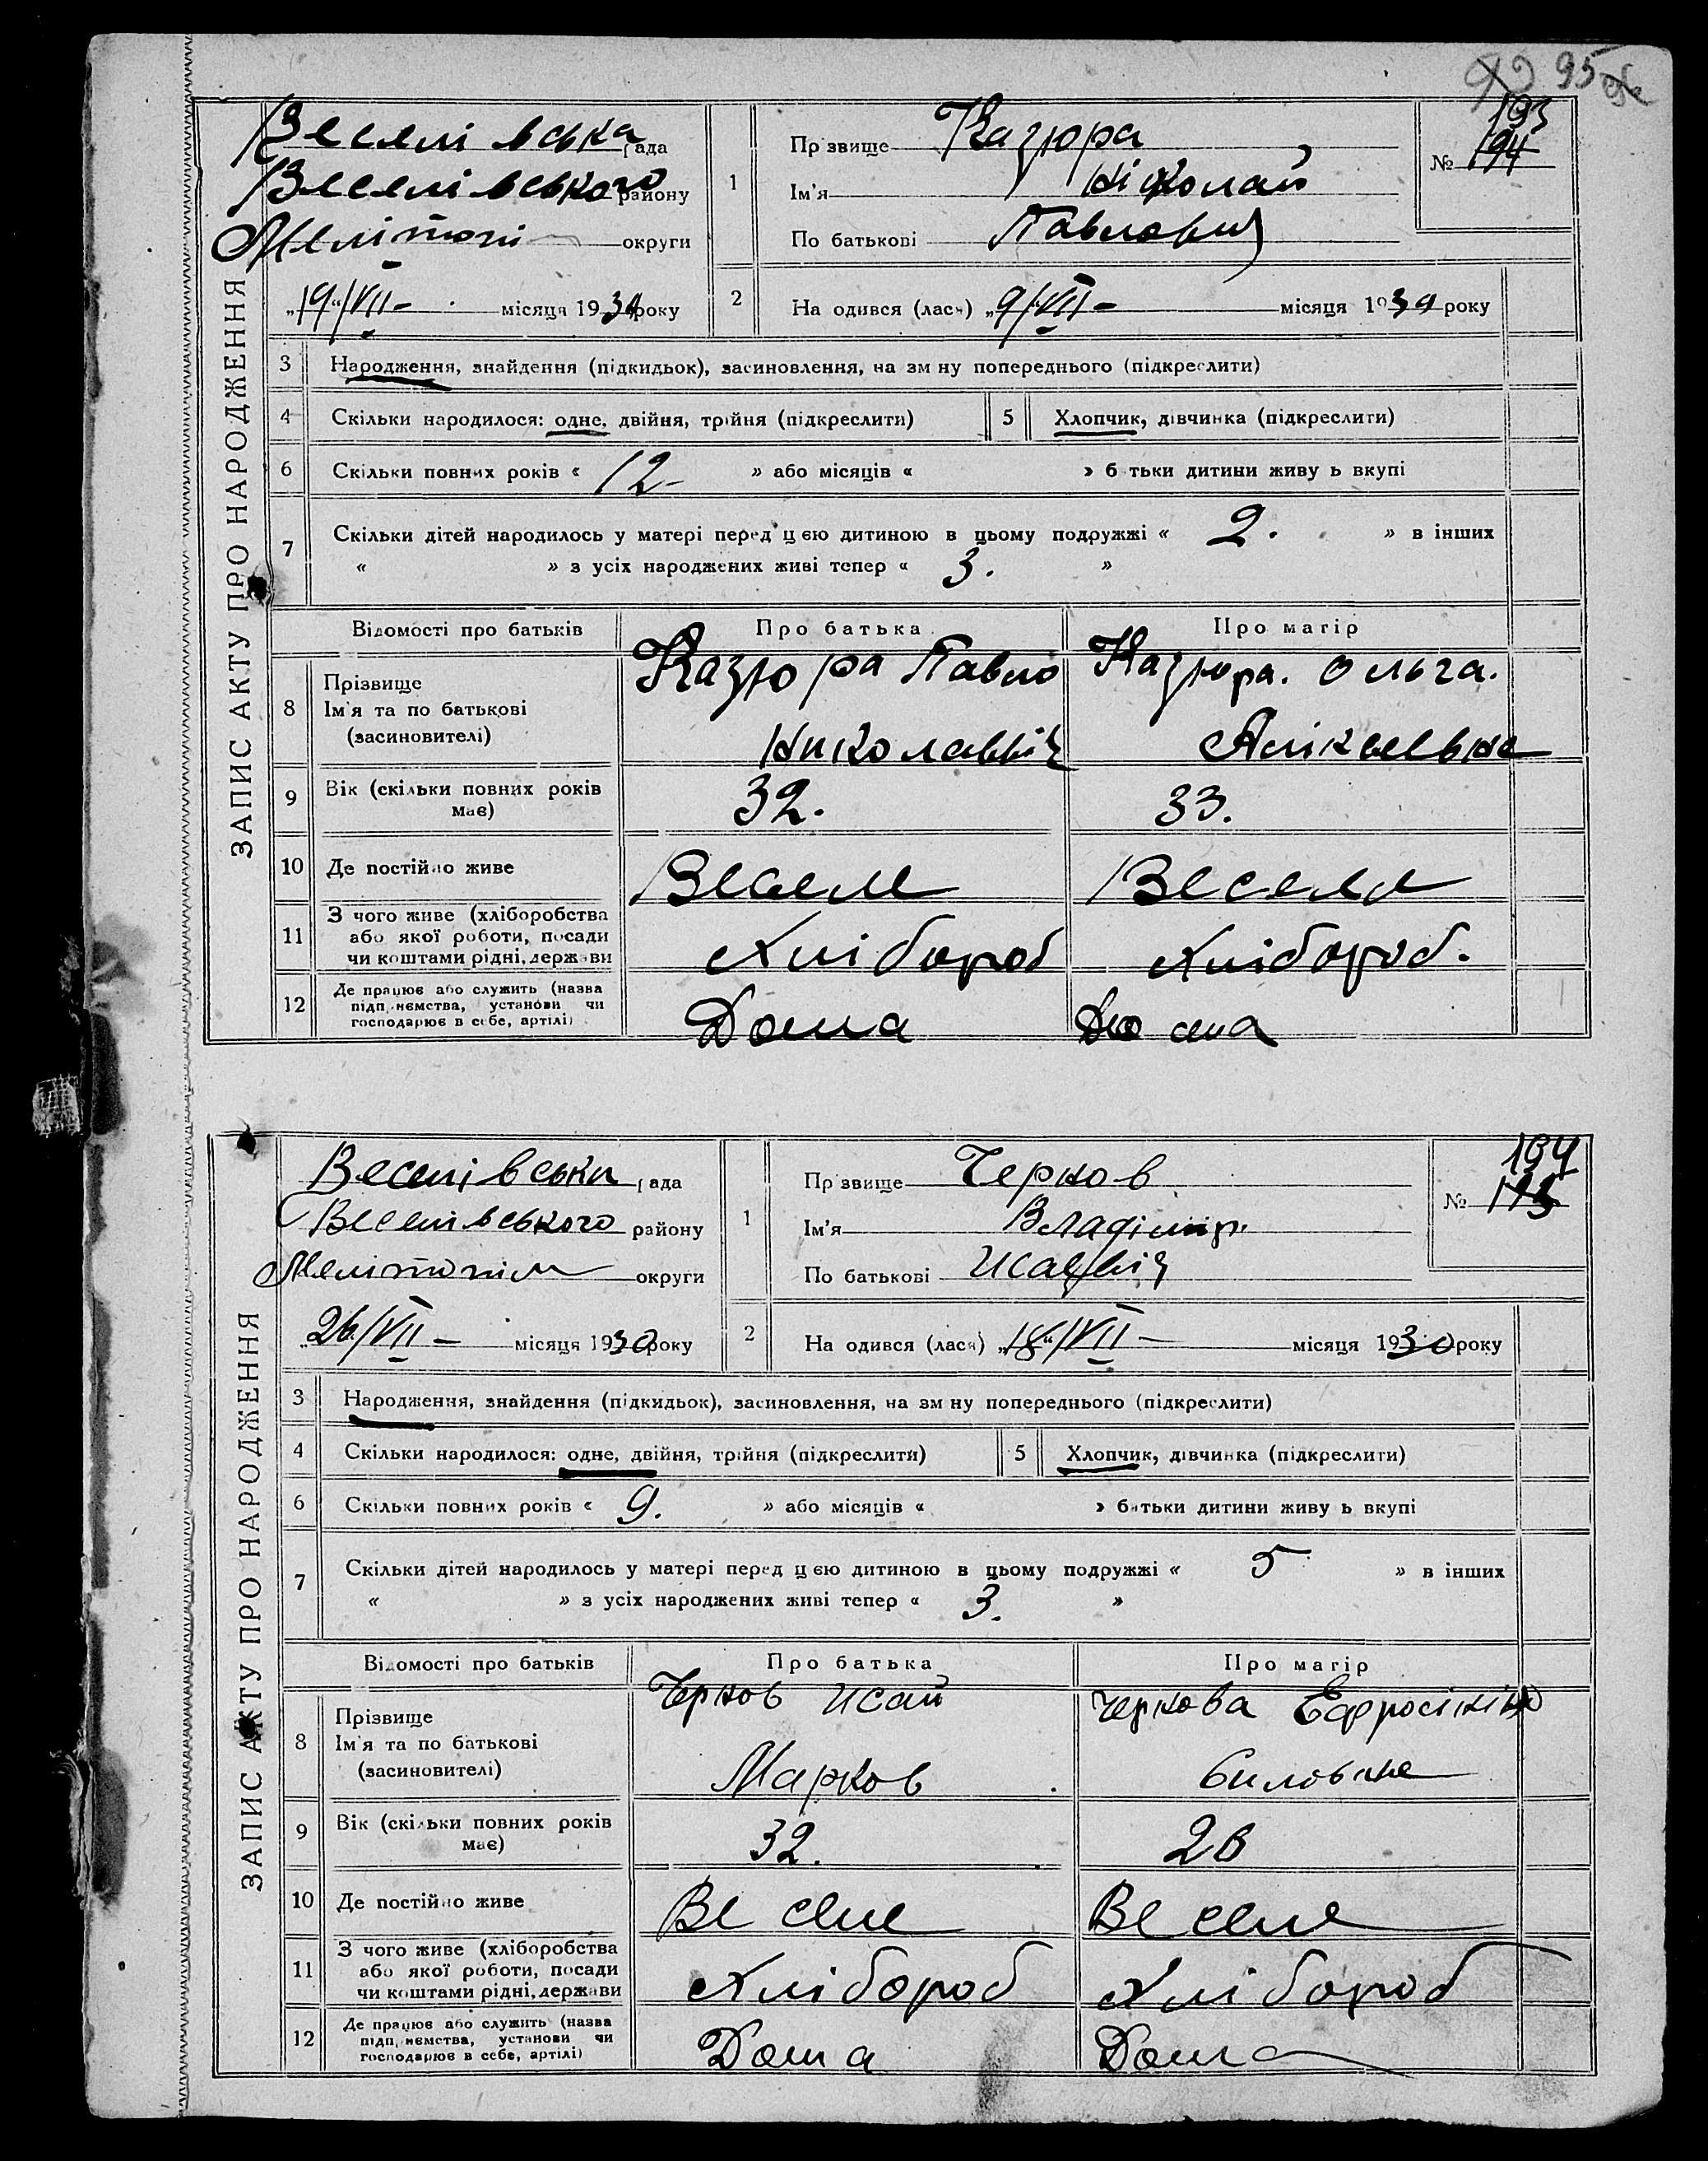 95
ЗАПИС АКТУ ПРО НАРОДЖЕННЯ
Веселівська рада
Веселівського району
округи
„19“/VII- місяця 1930 року
1
Прізвище Казюра
Ім'я Ніколай
По батькові Павлович
№ 193
194
2
На одився (лась) „9“/VII- місяця 1930 року
3 Народження, знайдення (підкидьок), засиновлення, на зм ну попереднього (підкреслити)
4 Скільки народилося: одне, двійня, трійня (підкреслити) 5 Хлопчик, дівчинка (підкреслити)
6 Скільки повних років « 12- » або місяців « » б тьки дитини живу ь вкупі
7 Скільки дітей народилось у матері перед цією дитиною в цьому подружжі « 2. » в інших
« » з усіх народжених живі тепер « 3. »
Відомості про батьків Про батька Про матір
8 Прізвище
Ім'я та по батькові
(засиновителі)
Казюра Павло
Казюра. Ольга.
9 Вік (скільки повних років має) 32. 33.
10 Де постійно живе Веселе Веселе
11 З чого живе (хліборобства
або якої роботи, посади
чи коштами рідні, держави
Хлібороб Хлібороб.
12 Де працює або служить (назва
підприємства, установи чи
господарює в себе, артілі)
Дома Дома
ЗАПИС АКТУ ПРО НАРОДЖЕННЯ
Веселівська рада
Веселівського району
округи
„26“/VII- місяця 1930 року
1
Прізвище Чернов
Ім'я Владімір
По батькові
№ 194
193
2
На одився (лась) „18“/VII- місяця 1930 року
3 Народження, знайдення (підкидьок), засиновлення, на зм ну попереднього (підкреслити)
4 Скільки народилося: одне, двійня, трійня (підкреслити) 5 Хлопчик, дівчинка (підкреслити)
6 Скільки повних років « 9. » або місяців « » батьки дитини живу ь вкупі
7 Скільки дітей народилось у матері перед цією дитиною в цьому подружжі « 5 » в інших
« » з усіх народжених живі тепер « 3. »
Відомості про батьків Про батька Про матір
8 Прізвище
Ім'я та по батькові
(засиновителі)
Чернов Исай
Марков
Чернова Ефросінія
9 Вік (скільки повних років має) 32. 28
10 Де постійно живе Веселе Веселе
11 З чого живе (хліборобства
або якої роботи, посади
чи коштами рідні, держави
Хлібороб Хлібороб
12 Де працює або служить (назва
підприємства, установи чи
господарює в себе, артілі)
Дома Дома